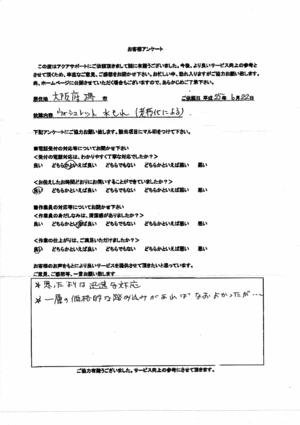 お客様アンケート
この度はアクアサポートにご依頼頂きまして誠に有難うございました。今後、より良いサービス向上の参考と
させて頂くため、率直なご意見、ご感想をお聞かせ下さい。お忙しい中、恐れ入りますがご協力お願い致します。
尚、ホームページに公開させていただく場合がございますので、あらかじめご了承下さい。
居住地 大阪府堺 市 ご依頼日 平成25年 6月22日
依頼内容 ウォシュレット 水もれ (老朽化による)
下記アンケートにご協力お願い致します。該当項目にマル印をつけて下さい。
■電話受付の対応等についてお聞かせ下さい
<受付の電話対応は、わかりやすく丁寧な対応でしたか?>
良い どちらかといえば良い どちらでもない どちらかといえば悪い 悪い
<お伝えしたお時間どおりにお伺いすることができていましたか?>
良い どちらかといえば良い どちらでもない どちらかといえば悪い 悪い
■作業員の対応等についてお聞かせ下さい
<作業員の身だしなみは、清潔感がありましたか?>
良い どちらかといえば良い どちらでもない どちらかといえば悪い 悪い
<作業の仕上がりは、ご満足いただけましたか?>
良い どちらかといえば良い どちらでもない どちらかといえば悪い 悪い
お客様のお声をもとにより良いサービスを提供させて頂きたいと思っています。
ご意見、ご感想等、一言お願い致します
*思ったよりは迅速な対応
*一層の価格的な踏み込みがあればなおよかったが…
ご協力有難うございました。サービス向上の参考にさせて頂きます。